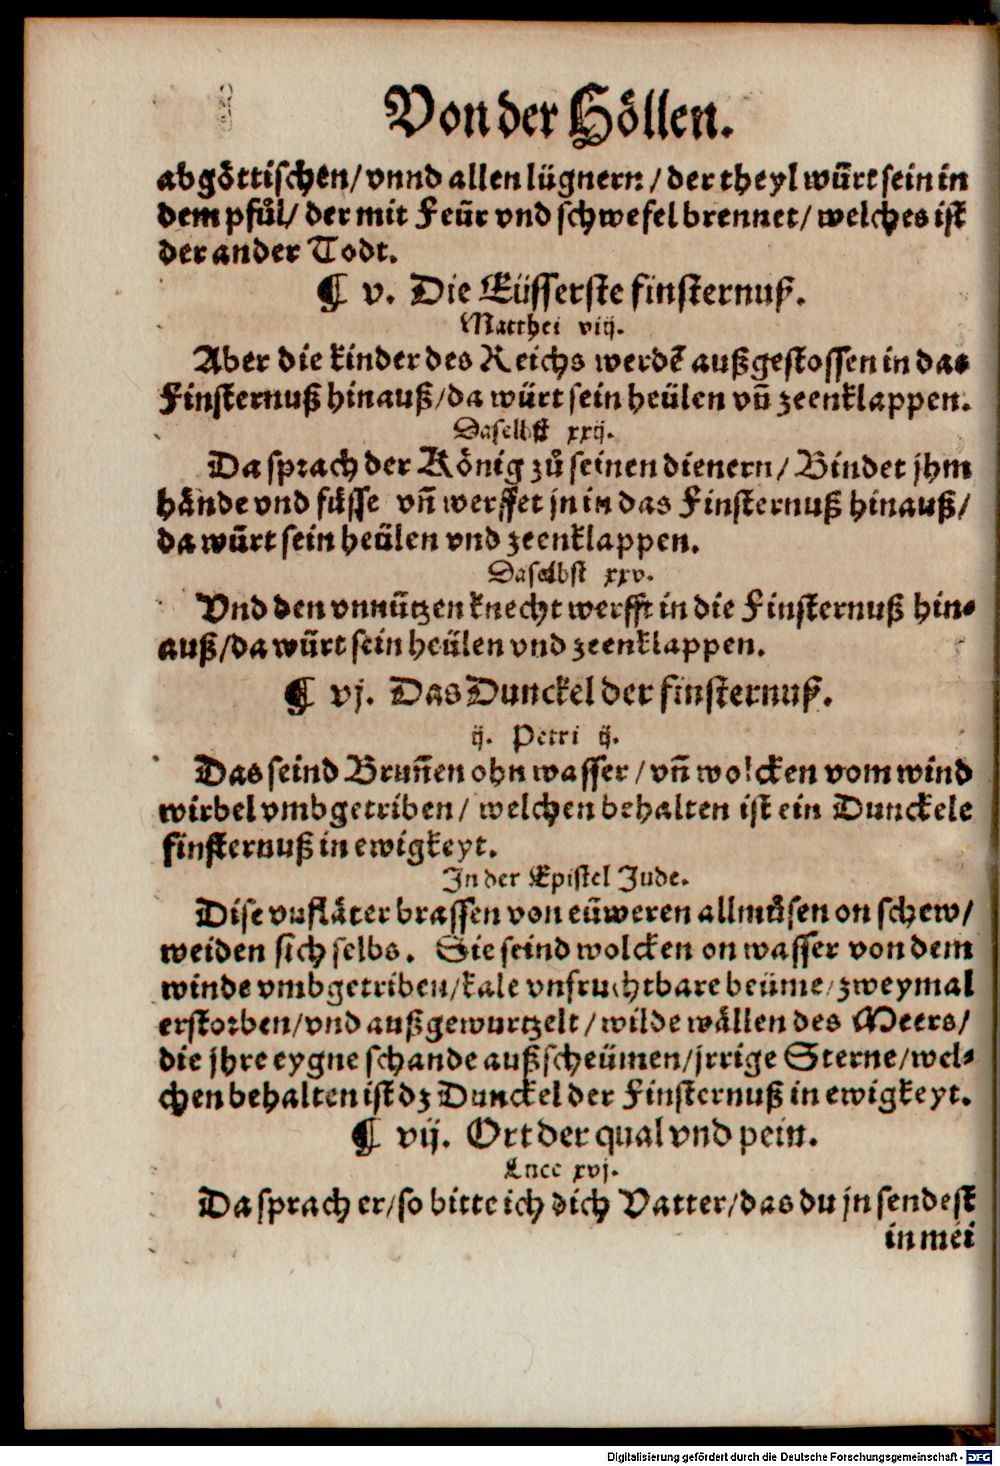 Von der Höllen.
abgöttischen/ vnnd allen lügnern/ der theyl würt sein in
dem pfůl/ der mit Feür vnd schwefel brennet/ welches ist
der ander Todt.
¶ v. Die Eüsserste finsternuß.
Matthei viij.
Aber die kinder des Reichs werdē außgestossen in das
Finsternuß hinauß/ da würt sein heülen vñ zeenklappen.
Daselbst xxij.
Da sprach der König zů seinen dienern/ Bindet jhm
hände vnd füsse vñ werffet jn in das Finsternuß hinauß/
da würt sein heülen vnd zeenklappen.
Daselbst xxv.
Vnd den vnnützen knecht werfft in die Finsternuß hin-
auß/ da würt sein heülen vnd zeenklappen.
¶ vj. Das Dunckel der finsternuß.
ij. Petri ij.
Das seind Bruñen ohn wasser/ vñ wolcken vom wind
wirbel vmbgetriben/ welchen behalten ist ein Dunckele
finsternuß in ewigkeyt.
In der Epistel Jude.
Dise vnfläter brassen von eüweren allmůsen on schew/
weiden sich selbs. Sie seind wolcken on wasser von dem
winde vmbgetriben/ kale vnfruchtbare beüme/ zweymal
erstorben/ vnd außgewurtzelt/ wilde wällen des Meers/
die jhre eygne schande außscheümen/ jrrige Sterne/ wel-
chen behalten ist dz Dunckel der Finsternuß in ewigkeyt.
¶ vij. Ort der qual vnd pein.
Luce xvj.
Da sprach er/ so bitte ich dich Vatter/ das du jn sendest
in mei
Digitalisierung gefördert durch die Deutsche Forschungsgemeinschaft - DFG